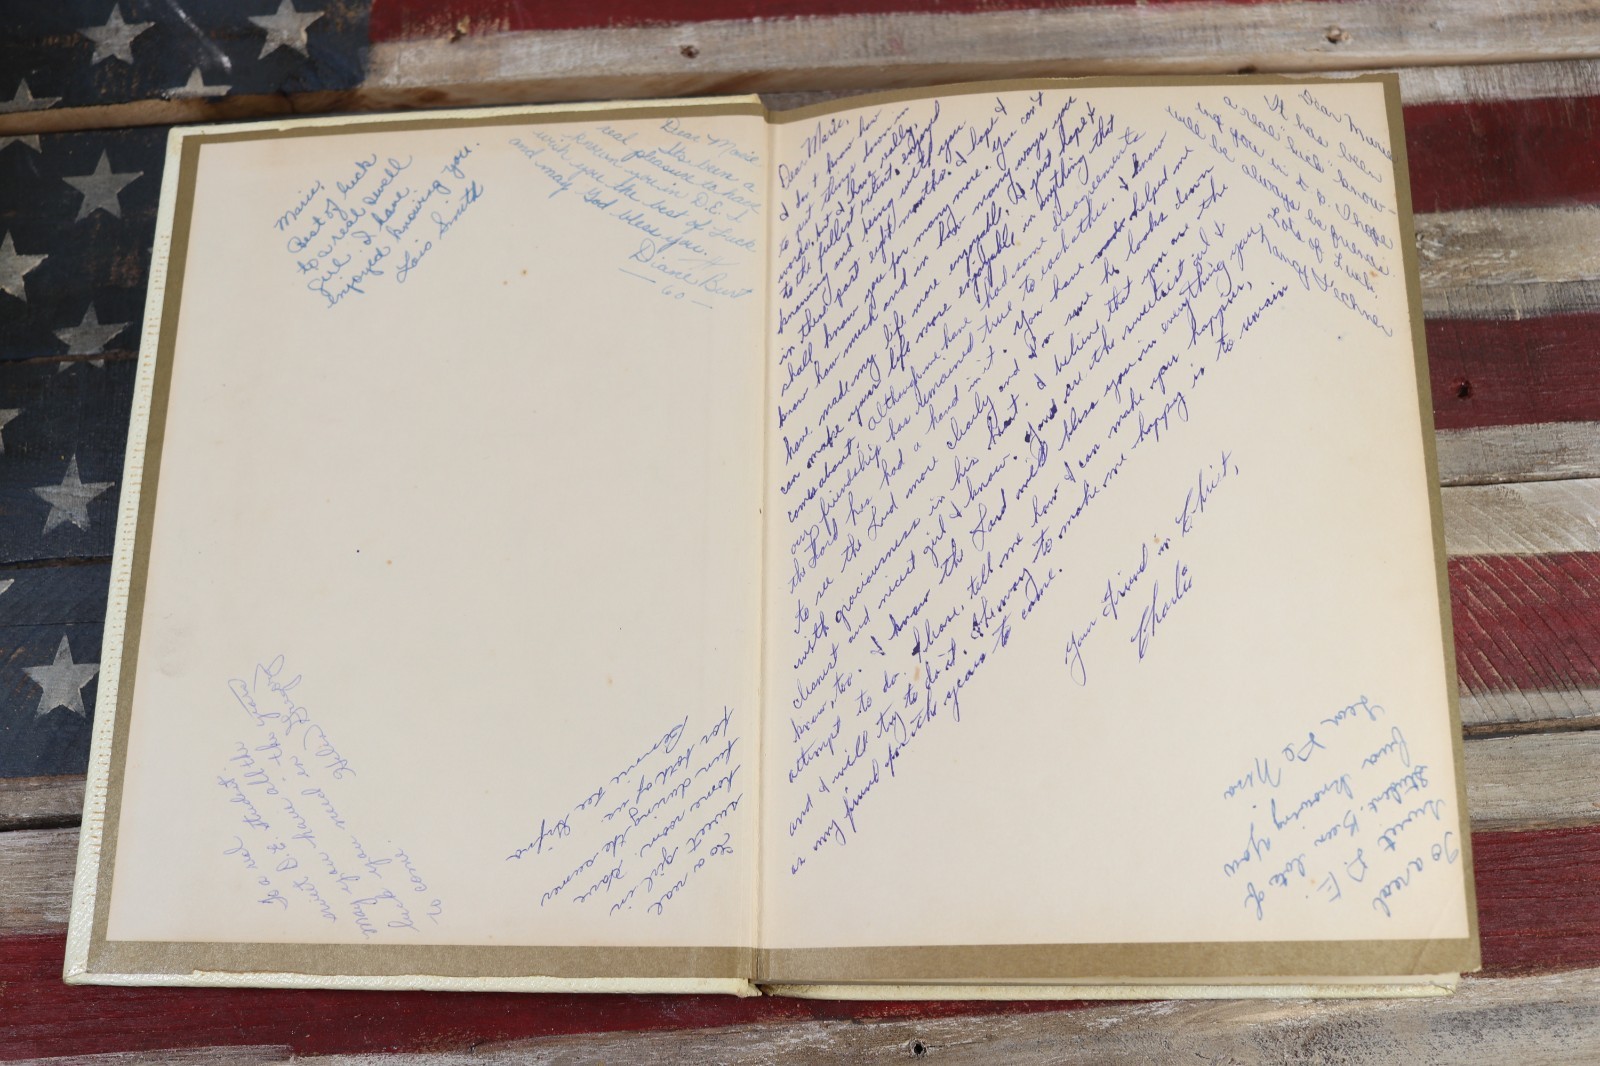 Marie,
Best of luck
to a real swell
girl. I have
enjoyed knowing you.
Lois Smith
Dear Marie
Its been a
real pleasure to have
known you in D.E. I
wish you the best of luck
and may God bless you.
Diane Burt
- 60 -
To a real
sweet D.E. student.
May you have all the
luck you need in the years
to come.
To a real
sweet girl in
home room. Have
fun during the summer
for both of us
Bonnie Lee
Dear Marie,
I don't know how
to put things down in
words, but I have really,
to the fullest extent, enjoyed
knowing and being with you
in these past eight months. I hope I
shall know you for many more. You can't
know how much and in how many ways you
have made my life more enjoyable, I just hope I
can make your life more enjoyable in anything that
comes about. Although we have had some disagreements
our friendship has remained true to each other. I know
the Lord has had a hand in it. You have helped me
to see the Lord more clearly and I'm sure he looks down
with graciousness in his heart. I believe that you are the
cleanest and nicest girl I know. You are the sweetest girl I
know, too. I know the Lord will bless you in everything you
attempt to do. Please, tell me how I can make you happier,
and I will try to do it. The way to make me happy is to remain
as my friend for the years to come.
Your Friend in Christ,
Charlie
Dear Marie
It has been
a real "kick" know-
ing you in D.E. I hope
we'll always be friends.
Lots of Luck,
Nancy Lechner
To a real
sweet D.E.
Student. Been lots of
fun knowing you